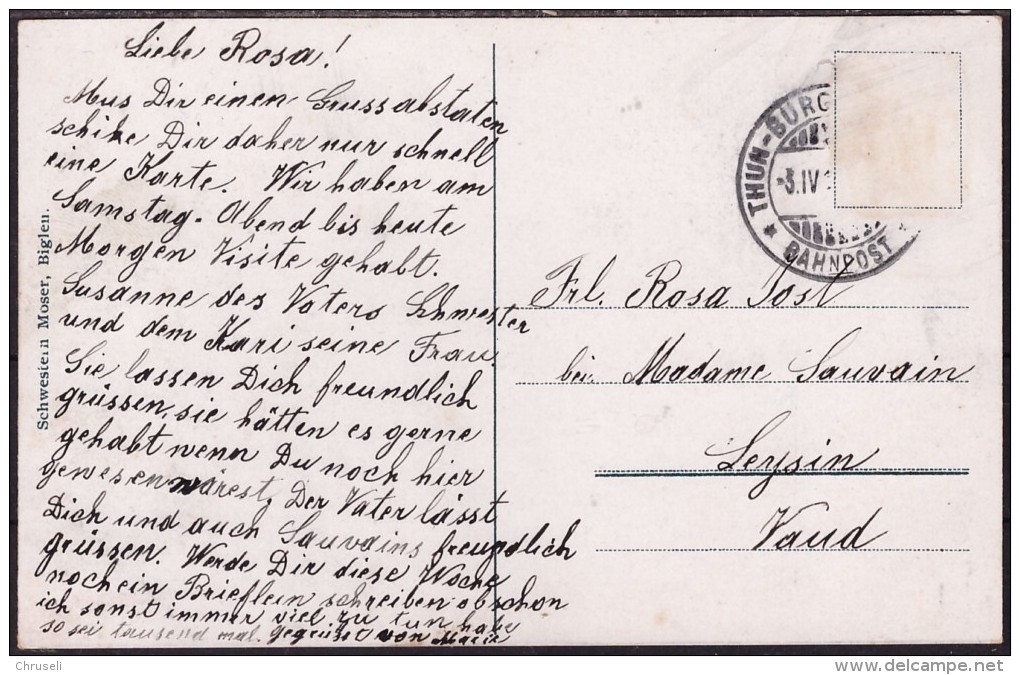 Liebe Rosa!
Mus Dir einen Gruss abstaten
schike Dir daher nur schnell
eine Karte. Wir haben am
Samstag-Abend bis heute
Morgen Visite gehabt.
Susanne des Vaters Schwester
und dem Kari seine Frau.
Sie lassen Dich freundlich
grüssen, sie hätten es gerne
gehabt wenn Du noch hier
gewesen wärest, Der Vater lässt
Dich und auch Sauvains freundlich
grüssen. Werde Dir diese Woche
noch ein Brieflein schreiben obschon
ich sonst immer viel zu tun habe
so sei tausend mal gegrüsst von Marie
Schwestern Moser, Biglen.
THUN-BURG
3.IV
BAHNPOST
Frl. Rosa Jost
bei Madame Sauvain
Leysin
Vaud
Chruseli
www.delcampe.net